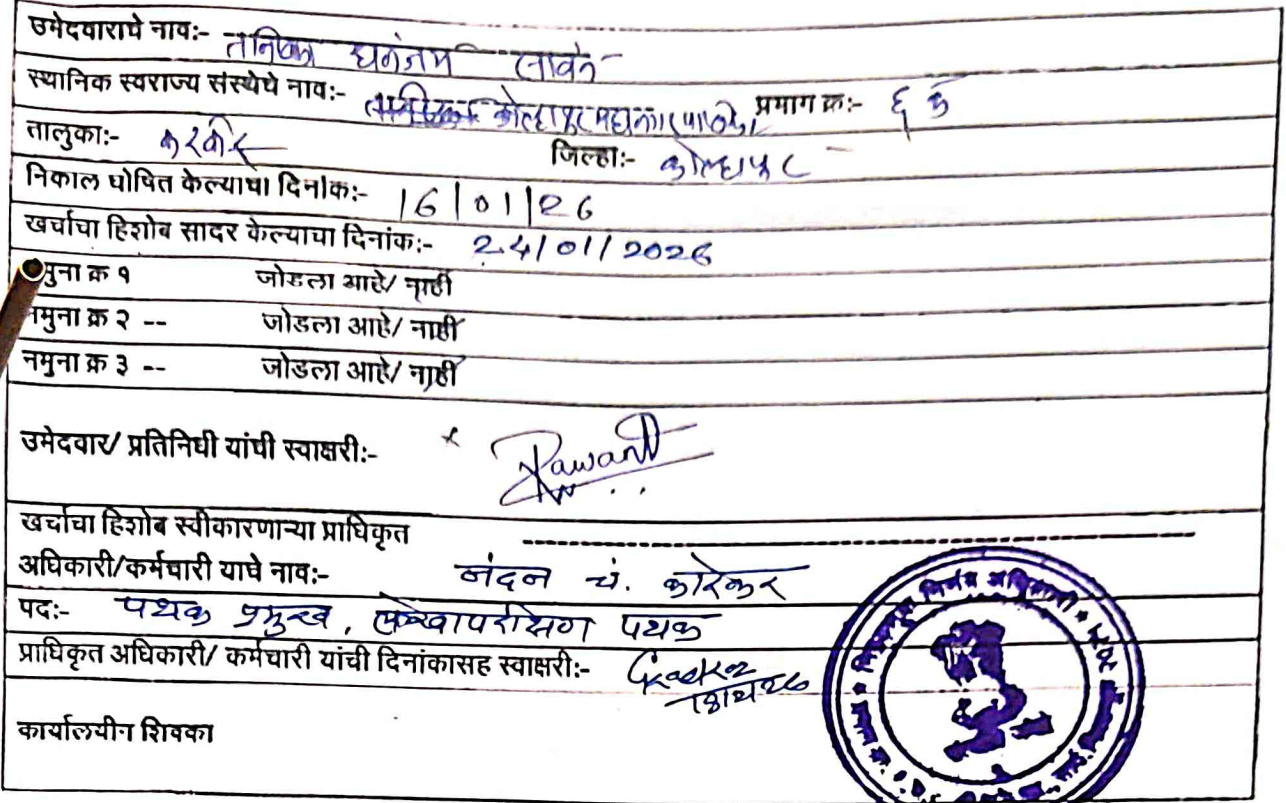 उमेदवाराचे नाव:- तनिष्का धनंजय सावंत
स्थानिक स्वराज्य संस्थेचे नाव:- कोल्हापूर महानगरपालिका प्रभाग क्र:- ६ क
तालुका:- करवीर जिल्हा:- कोल्हापूर
निकाल घोषित केल्याचा दिनांक:- 16/01/26
खर्चाचा हिशोब सादर केल्याचा दिनांक:- 24/01/2026
मुना क्र १ जोडला आहे/ नाही
नमुना क्र २ -- जोडला आहे/ नाही
नमुना क्र ३ -- जोडला आहे/ नाही
उमेदवार/ प्रतिनिधी यांची स्वाक्षरी:-
खर्चाचा हिशोब स्वीकारणाऱ्या प्राधिकृत
अधिकारी/कर्मचारी याचे नाव:- नंदन चं. कारेकर
पद:- पथक प्रमुख, लेखापरीक्षण पथक
प्राधिकृत अधिकारी/ कर्मचारी यांची दिनांकासह स्वाक्षरी:-
कार्यालयीन शिक्का